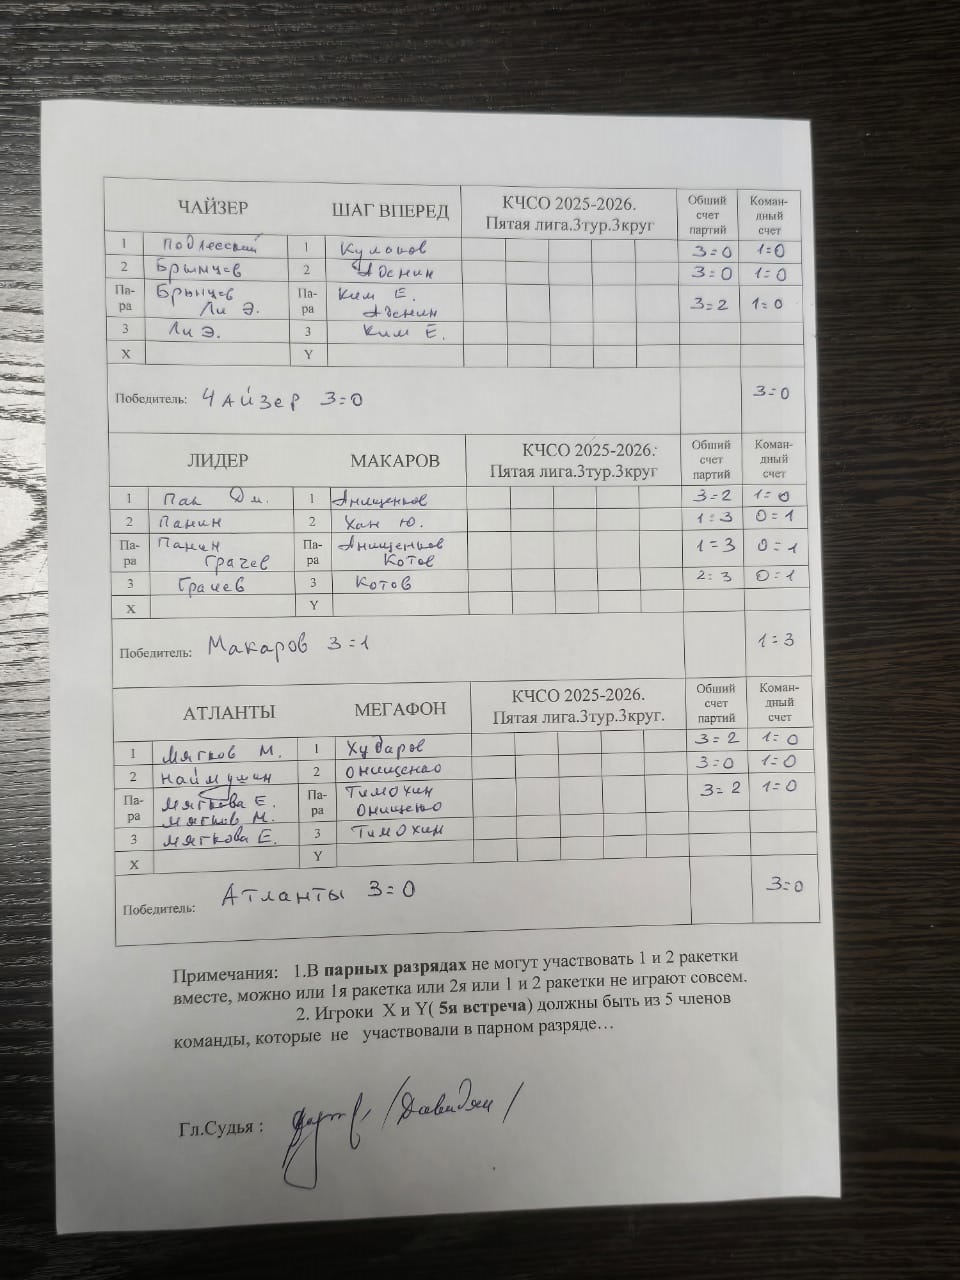 ЧАЙЗЕР ШАГ ВПЕРЕД КЧСО 2025-2026. Пятая лига.3тур.3круг Общий счет партий Коман-дный счет
1 Подлесный 1 Кулаков 3=0 1=0
2 Брынцев 2 Аденин 3=0 1=0
Па-ра Брынцев Ли Э. Па-ра Ким Е. Аденин 3=2 1=0
3 Ли Э. 3 Ким Е.
X Y
Победитель: Чайзер 3=0 3=0
ЛИДЕР МАКАРОВ КЧСО 2025-2026. Пятая лига.3тур.3круг Общий счет партий Коман-дный счет
1 Пак Дм. 1 Анищенков 3=2 1=0
2 Панин 2 Хан Ю. 1=3 0=1
Па-ра Панин Грачев Па-ра Анищенков Котов 1=3 0=1
3 Грачев 3 Котов 2=3 0=1
X Y
Победитель: Макаров 3=1 1=3
АТЛАНТЫ МЕГАФОН КЧСО 2025-2026. Пятая лига.3тур.3круг. Общий счет партий Коман-дный счет
1 Мягков М. 1 Хударов 3=2 1=0
2 Наймушин 2 Онищенко 3=0 1=0
Па-ра Мягкова Е. Мягков М. Па-ра Тимохин Онищенко 3=2 1=0
3 Мягкова Е. 3 Тимохин
X Y
Победитель: Атланты 3=0 3=0
Примечания: 1.В парных разрядах не могут участвовать 1 и 2 ракетки
вместе, можно или 1я ракетка или 2я или 1 и 2 ракетки не играют совсем.
2. Игроки X и Y( 5я встреча) должны быть из 5 членов
команды, которые не участвовали в парном разряде…
Гл.Судья : /Давидян/